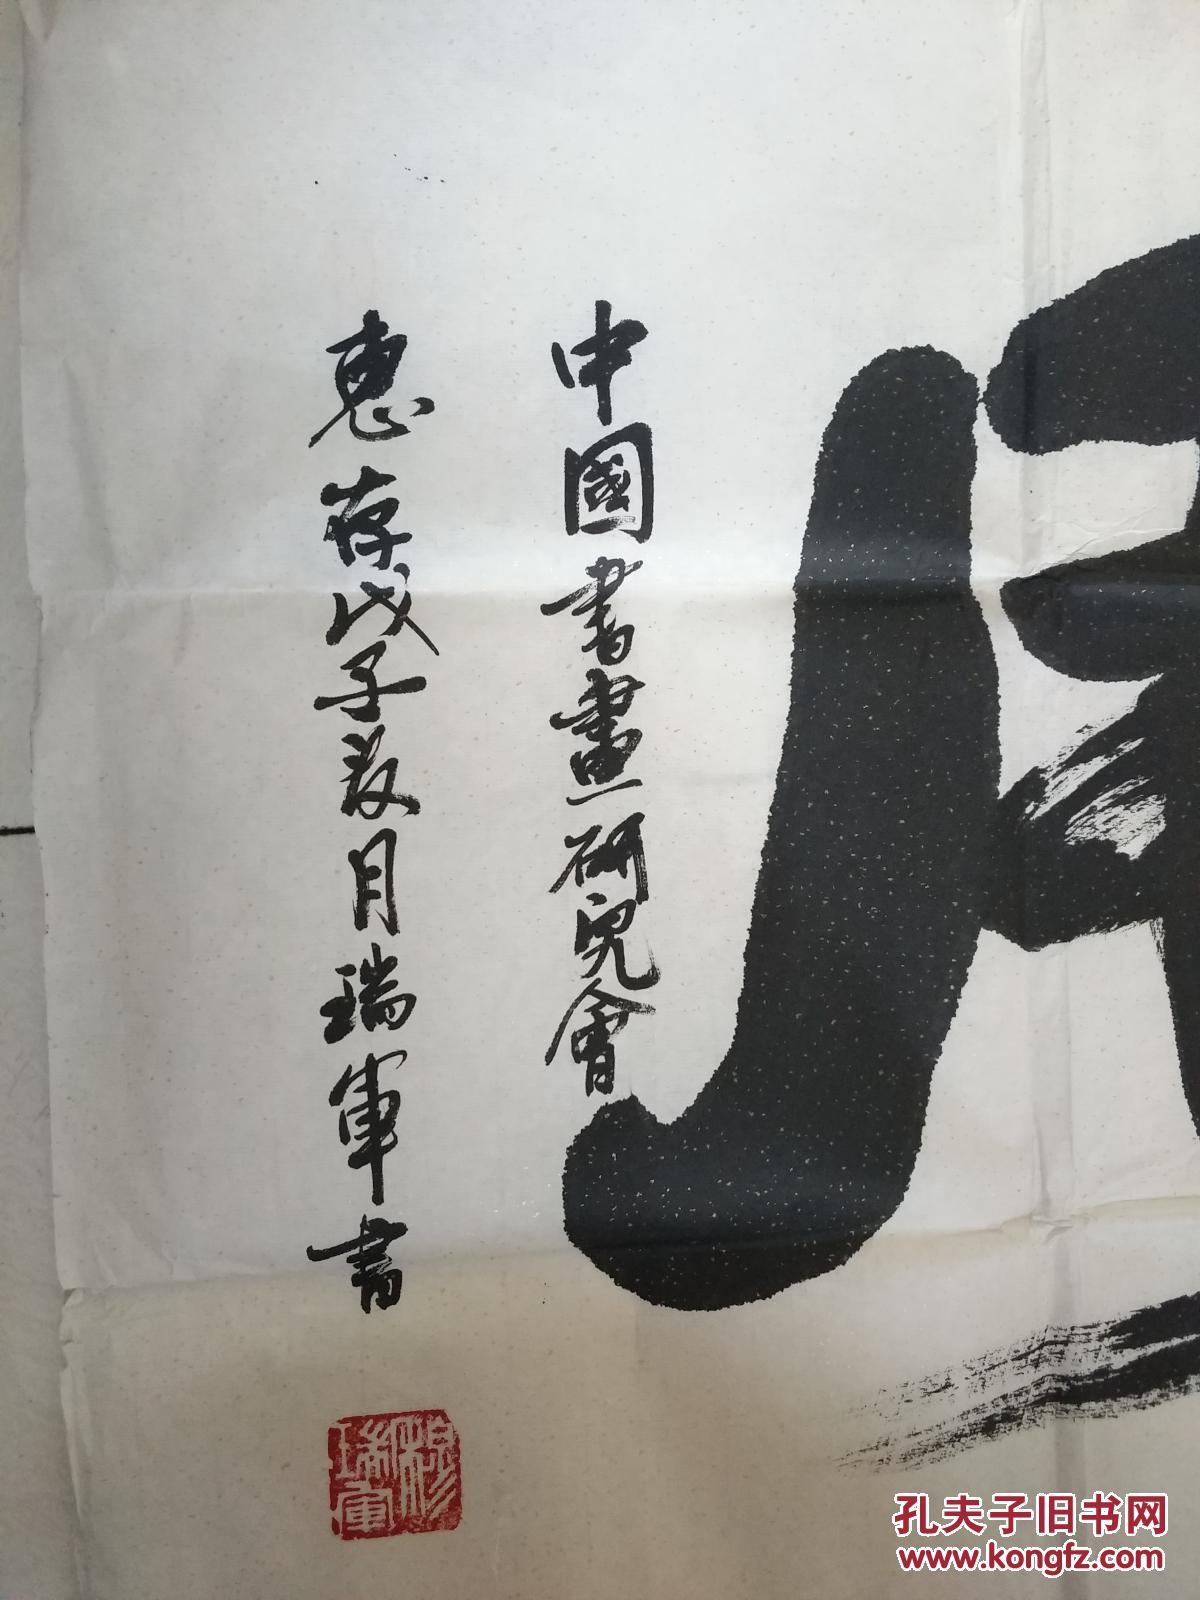 中國書畫研究會
惠存戊子夏月瑞軍書
穆瑞軍
孔夫子旧书网
www.kongfz.com